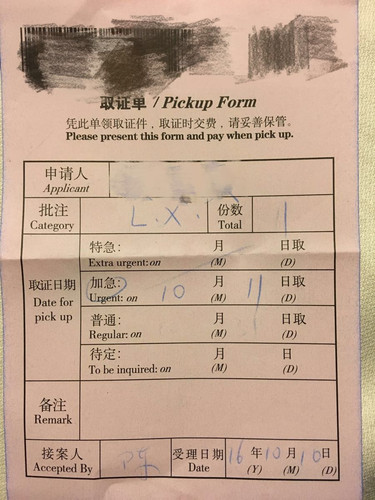 取证单 / Pickup Form
凭此单领取证件，取证时交费，请妥善保管。
Please present this form and pay when pick up.
申请人
Applicant
批注 L.X. 份数
Category Total
特急： 月 日取
Extra urgent: on (M) (D)
取证日期 加急： 10 月 11 日取
Date for pick up Urgent: on (M) (D)
普通： 月 日取
Regular: on (M) (D)
待定： 月 日
To be inquired: on (M) (D)
备注
Remark
接案人 受理日期 16 年 10 月 10 日
Accepted By Date (Y) (M) (D)